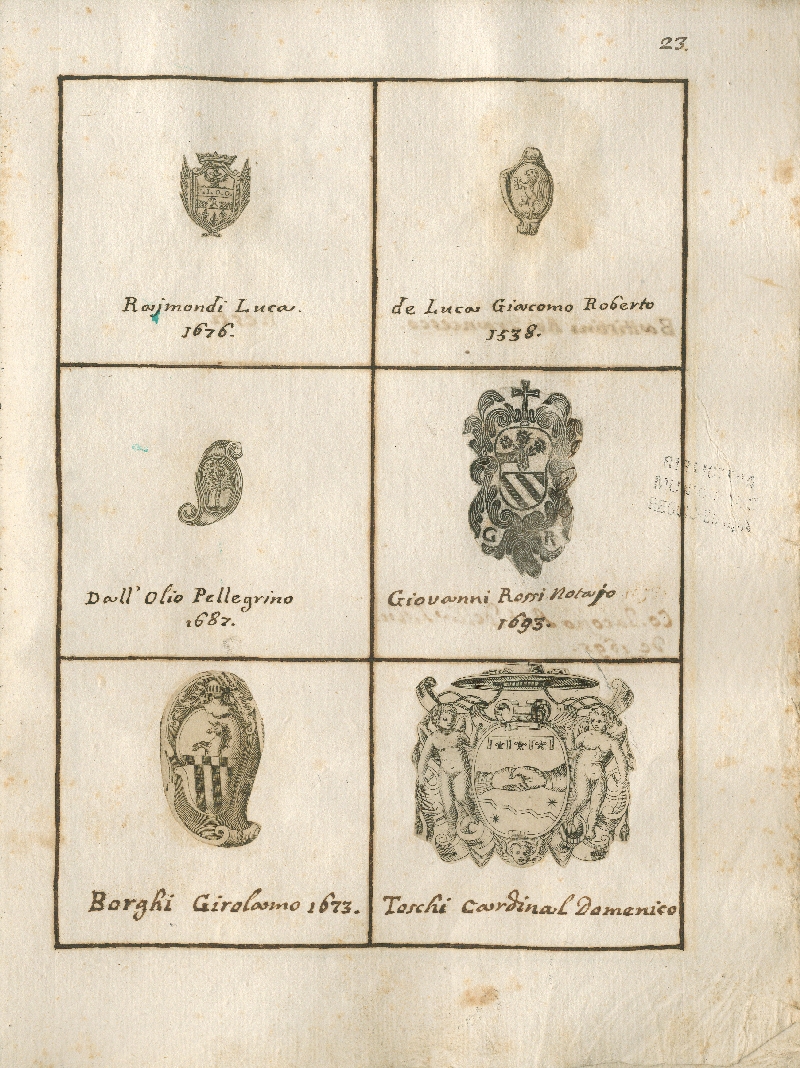 23.
Rajmondi Luca.
1676.
de Luca Giacomo Roberto
1538.
Dall' Olio Pellegrino
1687.
G R
Giovanni Rossi Notajo
1693.
Borghi Girolamo 1673.
Toschi Cardinal Domenico